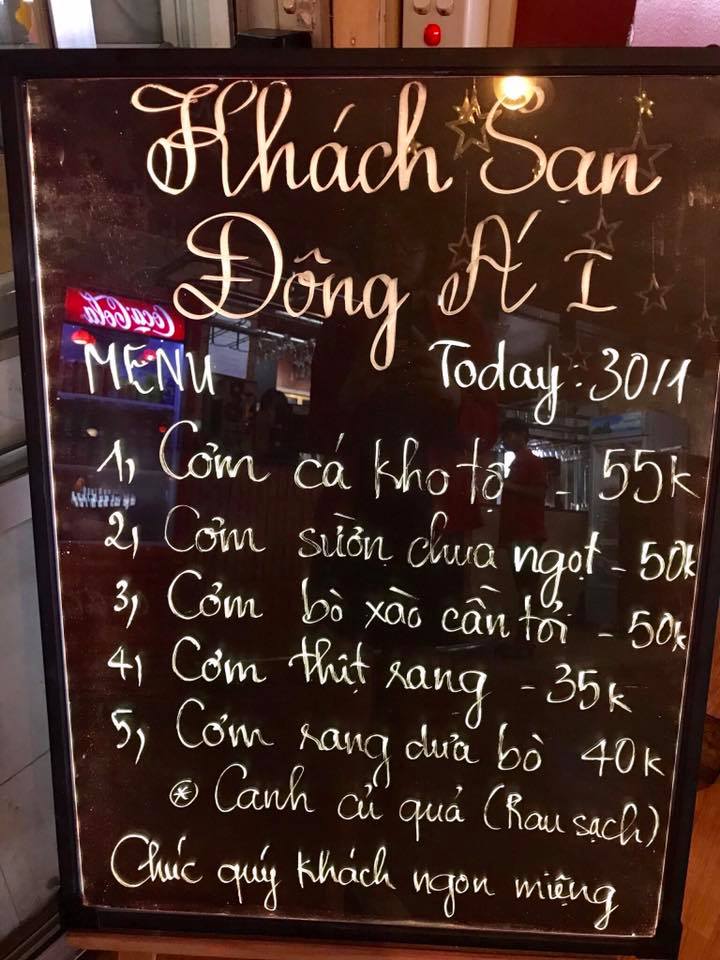 Khách Sạn
Đông Á I
Coca-Cola
MENU Today: 30/1
1, Cơm cá kho tộ - 55k
2, Cơm sườn chua ngọt - 50k
3, Cơm bò xào cần tỏi - 50k
4, Cơm thịt rang - 35k
5, Cơm rang dưa bò 40k
* Canh củ quả (Rau sạch)
Chúc quý khách ngon miệng